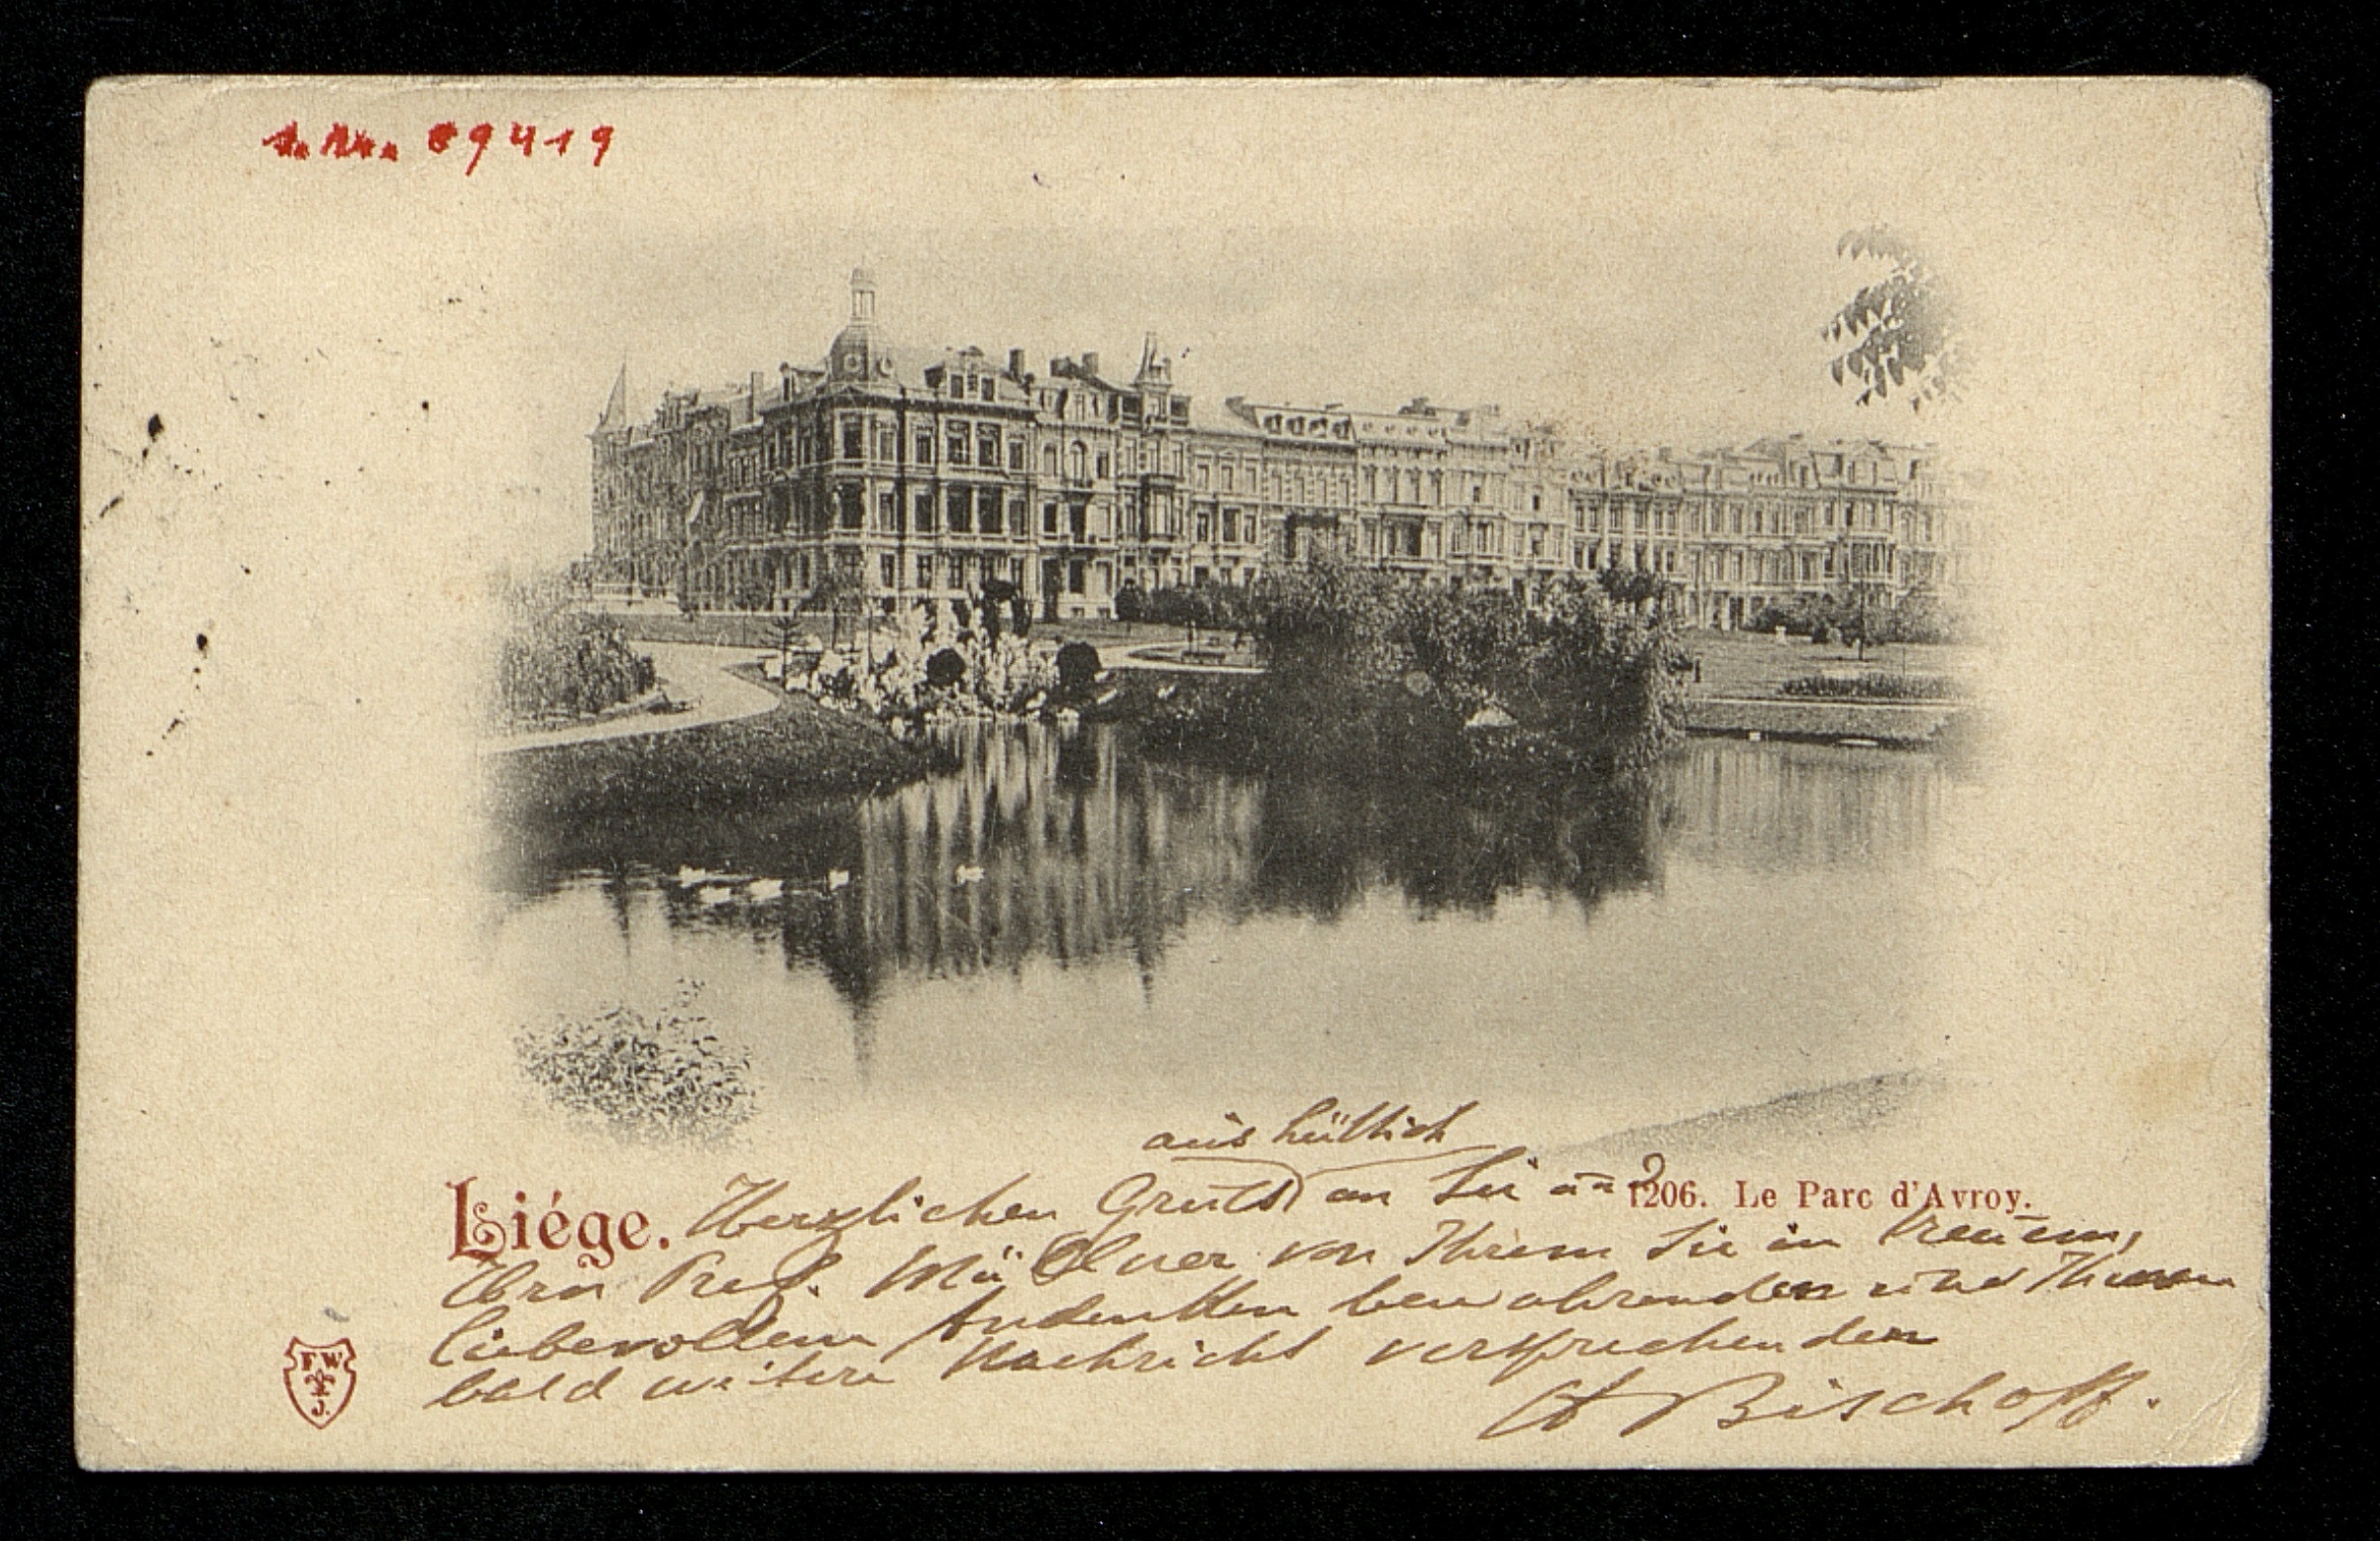 J.N. 89419
aus Lüttich
Liége. Herzlichen Gruß an Sie u
1206. Le Parc d'Avroy.
Hrn Prof. von Ihrem Sie in treuem,
liebevollem Andenken bewahrenden und Ihnen
bald weitere Nachricht versprechenden
A Bischoff.
F W
J.